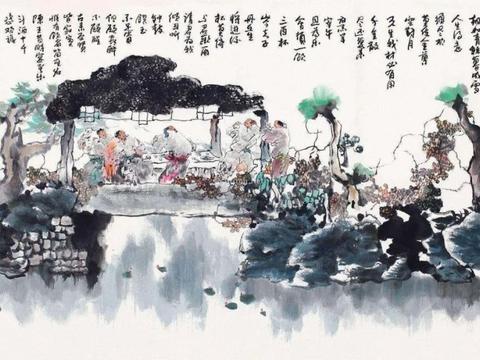 朝如青丝暮成雪
人生得意
须尽欢
莫使金樽
空对月
天生我材必有用
千金散
尽还复来
烹羊
宰牛
且为乐
会须一饮
三百杯
岑夫子
丹丘生
将进酒
杯莫停
与君歌一曲
请君为我
倾耳听
钟鼓
馔玉
不足贵
但愿长醉
不愿醒
古来圣贤
皆寂寞
惟有饮者留其名
陈王昔时宴平乐
斗酒十千
恣欢谑